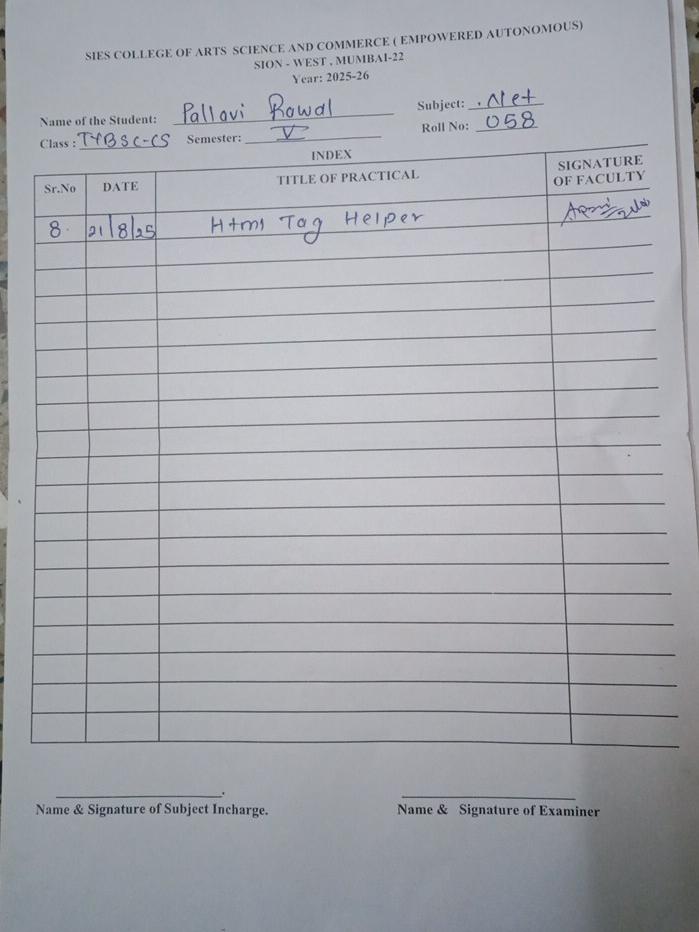 SIES COLLEGE OF ARTS SCIENCE AND COMMERCE ( EMPOWERED AUTONOMOUS)
SION - WEST , MUMBAI-22
Year: 2025-26
Name of the Student: Pallavi Rawal Subject: .Net
Class : TYBSC-CS Semester: V Roll No: 058
INDEX
Sr.No DATE TITLE OF PRACTICAL SIGNATURE OF FACULTY
8. 21/8/25 Html Tag Helper
Name & Signature of Subject Incharge. Name & Signature of Examiner